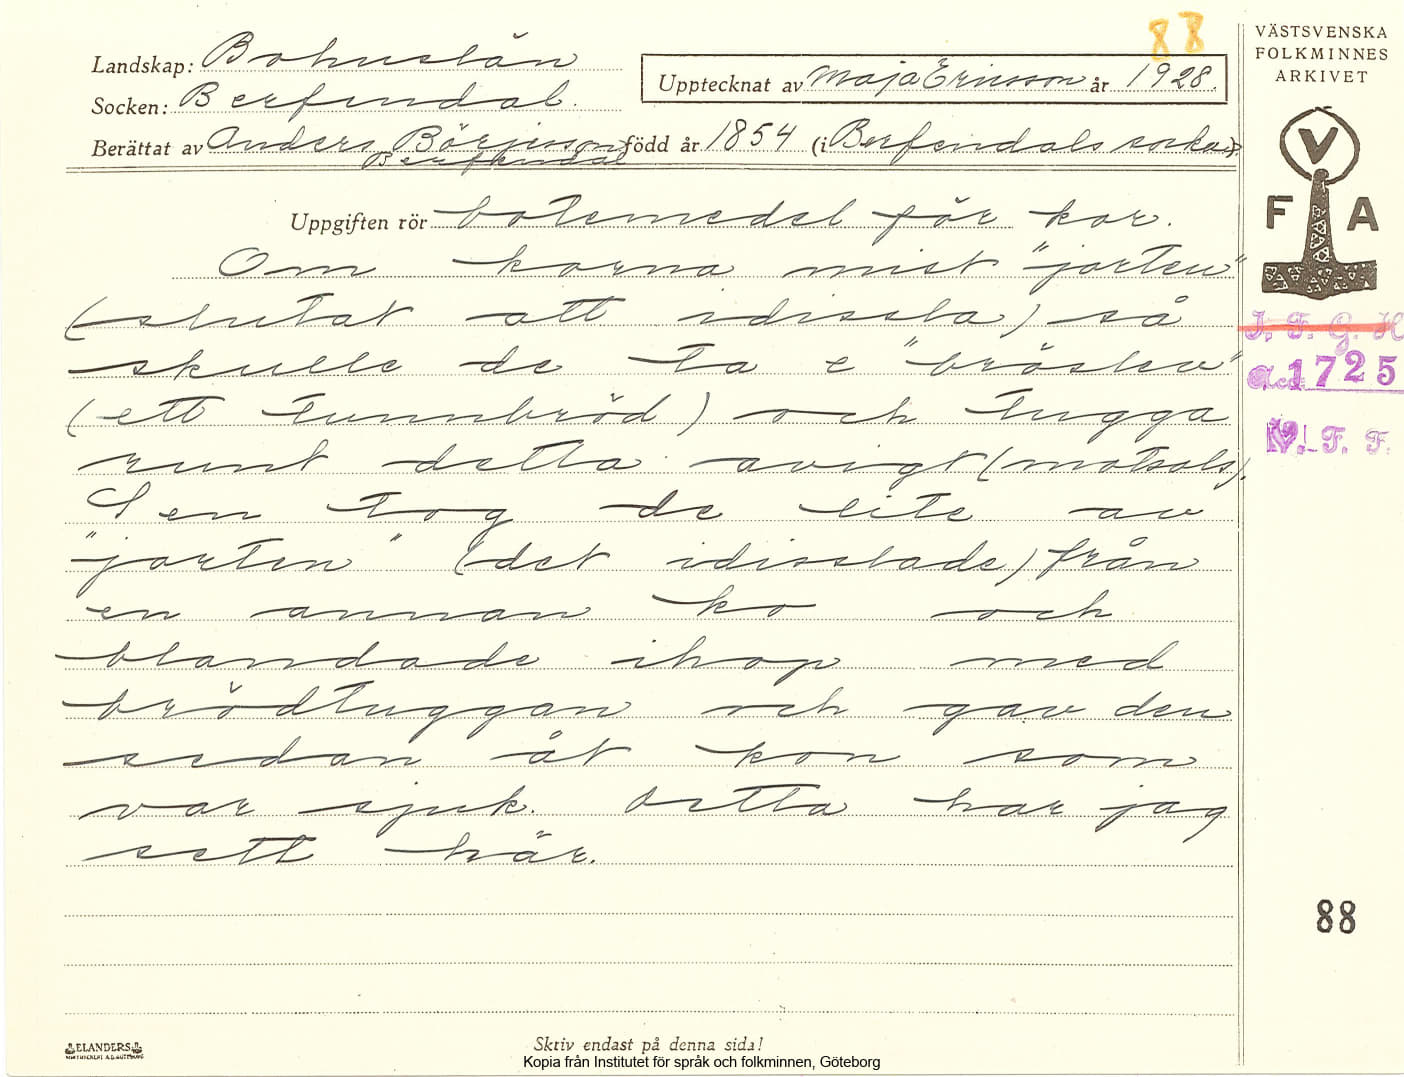 88
VÄSTSVENSKA
FOLKMINNES
ARKIVET
Landskap: Bohuslän
Upptecknat av Maja Ericsson år 1928.
Socken: Berfendal.
Berättat av Anders Börjesson född år 1854 (i Berfendals socken).
Berfendal
V
F A
Uppgiften rör botemedel för kor.
Om korna mist "jorten"
(slutat att idissla) så
skulle de ta e "bröslev"
(ett tunnbröd) och tugga
runt detta avigt (motsols).
Sen tog de lite av
"jorten" (det idisslade) från
en annan ko och
blandade ihop med
brödtuggan och gav den
sedan åt kon som
var sjuk. Detta har jag
sett här.
I. F. G. H
Acc. 1725
V. F. F.
88
ELANDERS
Skriv endast på denna sida!
Kopia från Institutet för språk och folkminnen, Göteborg